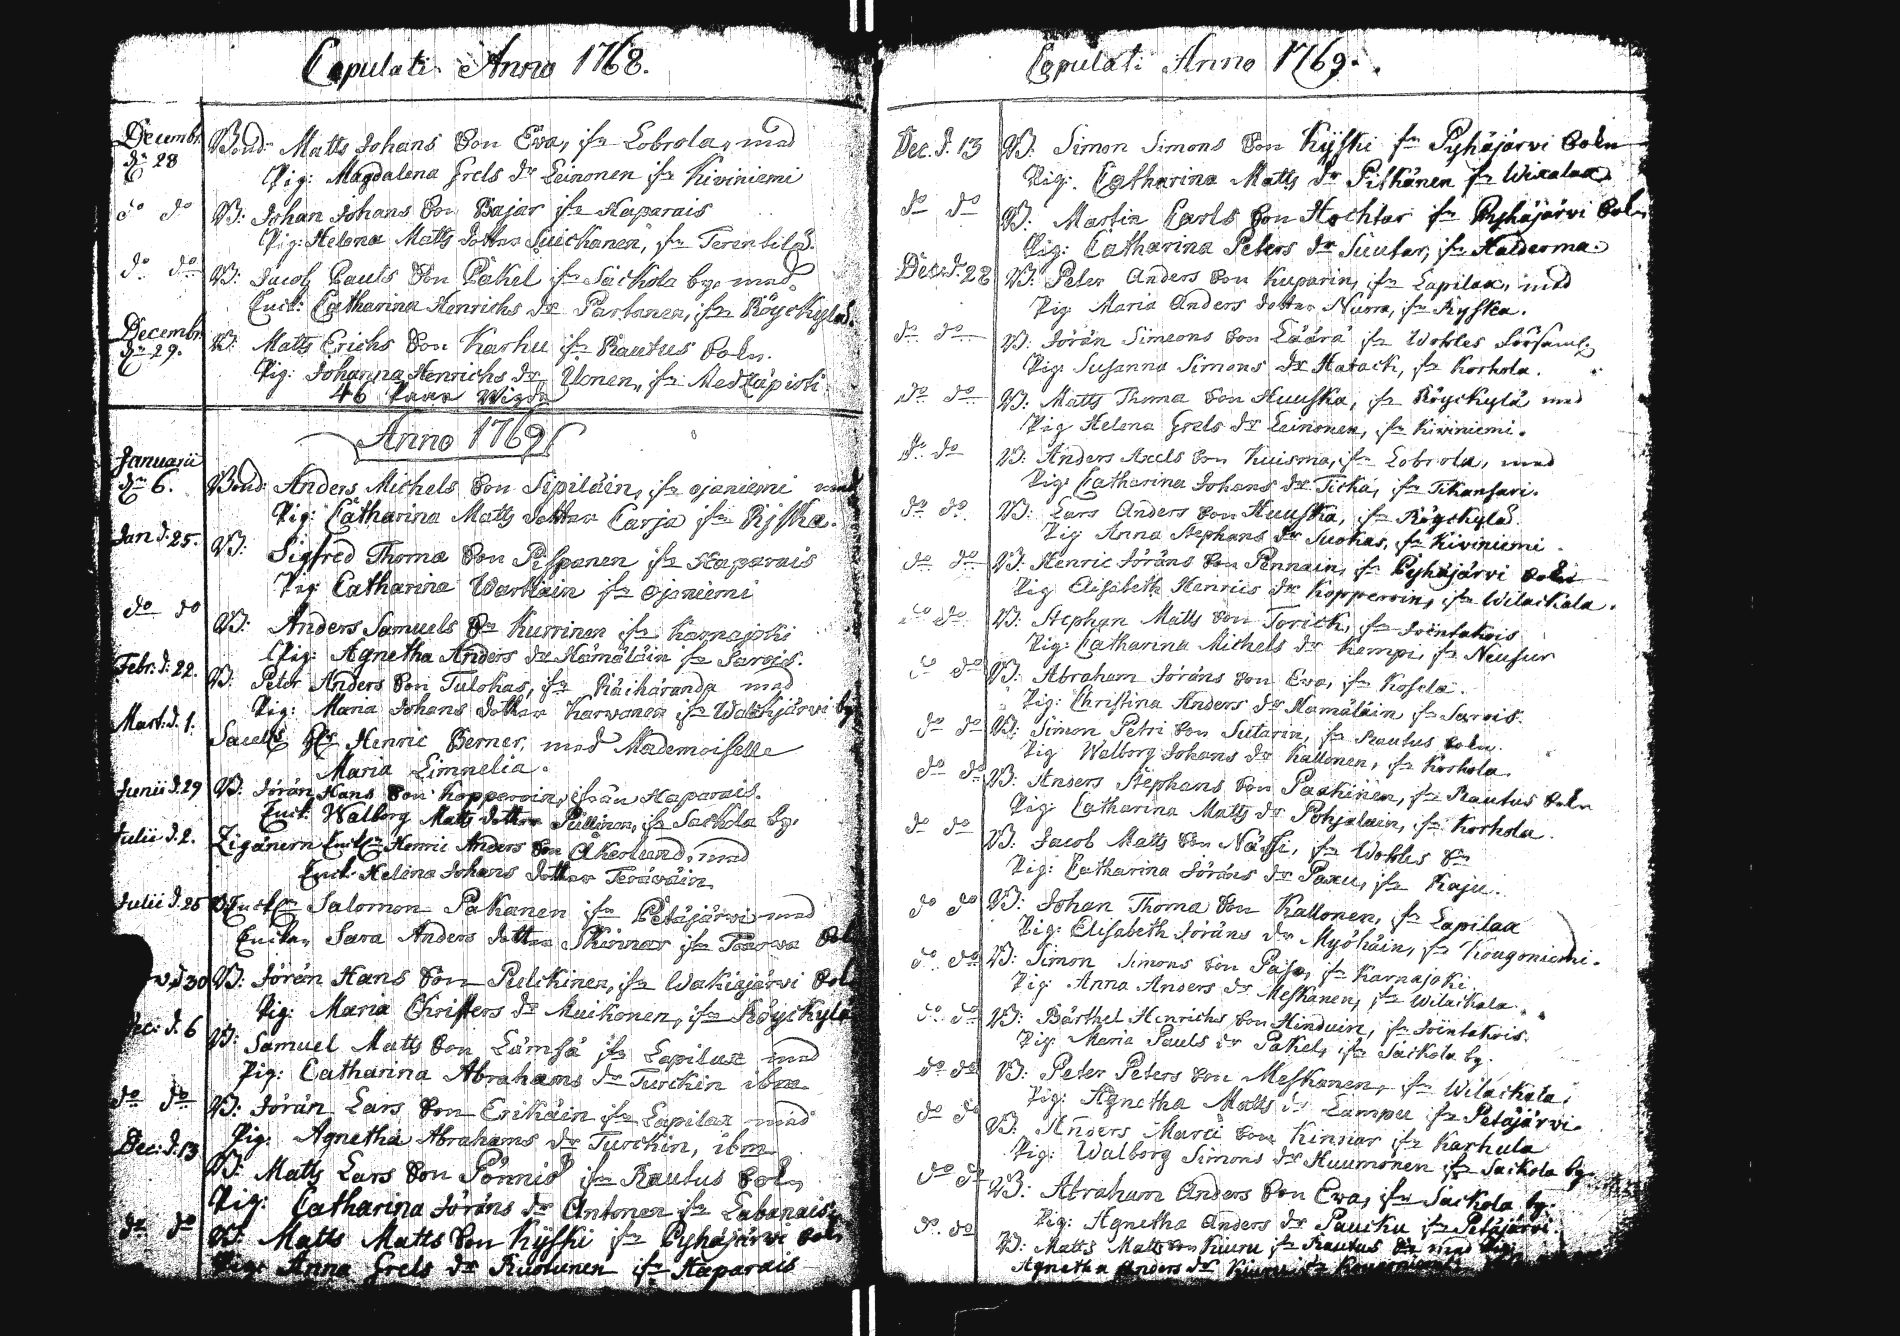 Copulati Anno 1768.
Decembr. Bond. Matts Johans Son Eva, ifr Lobrola, med
dn 28 Pig: Magdalena Grels dr Leinonen ifr Kiviniemi
do do B: Johan Johans Son Bajar ifr Haparais
Pig: Helena Matts dotter Suickanen, ifr Terentilä
do do B: Jacob Pauls Son Päkel ifr Sackola by, med
Enck: Catharina Henrichs dr Partanen, ifrn Röyckylä.
Decembr. B: Matts Erichs Son Karhu ifr Rautus Sokn.
dn 29. Pig: Johanna Henrichs dr Ilonen, ifr Medzäpirti
46 Paar Wigde
Anno 1769
Januarii
dn 6. Bond: Anders Michels Son Sipiläin, ifr Ojaniemi med
Pig: Catharina Matts dotter Carja ifr Rjska.
Jan d. 25. B: Sigfred Thoma Son Pispanen ifr Haparais
Pig Catharina Wartiain ifr Ojaniemi
do do B: Anders Samuels Son Kurrinen ifr Karnajoki
Pig: Agnetha Anders dr Hämäläin ifr Sarvis.
Febr: d: 22. B: Peter Anders Son Tulokas, ifr Räihäranda med
Pig: Maria Johans dotter Karvonen ifr Wackjärvi by
Mart: d. 1. Hr Henric Berner, med Mademoiselle
Maria Limnelia.
Junii d. 29 B: Jöran Hans Son Kopperoin, ifrån Haparais.
Enck: Walborg Matts dotter Pullinen, ifr Sackola by.
Julii d. 2. Ziganern Enckl. Henric Anders Son Åkerlund, med
Enck: Helena Johans dotter Teräväin
Julii d. 25 Salomon Pakanen ifr Petäjärvi med
Enckan Sara Anders dotter Skinnar ifr
d 30 B: Jöran Hans Son Pulckinen, ifr Wakiajärvi Sokn
Pig: Maria Christers dr Muikonen, ifrn Röyckylä
Dec: d. 6 B: Samuel Matts Son Lämsä ifr Lapilax med
Pig: Catharina Abrahams dr Turckin ibm
do do B: Jöran Lars Son Erikäin ifr Lapilax med
Pig: Agnetha Abrahams dr Turckin, ibm
Dec: d. 13 B: Matts Lars Son Pönniö ifr Rautus Sokn
Pig: Catharina Jörans dr Antonen ifr Labanais.
do do B: Matts Matts Son Kijski ifr Pyhäjärvi Sokn
Pig: Anna Grels dr Ruotunen ifr Haparais
Copulati Anno 1769.
Dec. d. 13 B: Simon Simons Son Kijski ifr Pyhäjärvi Sokn
Pig: Catharina Matts dr Pitkänen ifr Wixalax
do do B: Martin Carls Son Hochtar ifr Pyhäjärvi Sokn
Pig: Catharina Peters dr Suutar, ifr Halderma.
Dec. d. 28 B: Peter Anders Son Kuparin, ifr Lapilax, med
Pig Maria Anders dotter Nurra, ifr Ryska.
do do B: Jöran Simeons Son Läärä ifr Wokles Församl.
Pig: Susanna Simons dr Hatack, ifr Korhola.
do do B: Matts Thoma Son Huuska, ifr Röyckylä med
Pig Helena Grels dr Leinonen, ifr Kiviniemi.
do do B: Anders Axels Son Kuisma, ifr Lobrola, med
Pig: Catharina Johans dr Ticka, ifr Tikansari.
do do B: Lars Anders Son Huuska, ifr Röyckylä.
Pig Anna Stephans dr Suokas, ifr Kiviniemi.
do do B: Henric Jörans Son Pennain, ifr Pyhäjärvi Sokn
Pig Elisabeth Henrics dr Kopperoin, ifr Wilackala.
do do B: Stephan Matts Son Torick, ifr Joentakois
Pig: Catharina Michels dr Kempi, ifr Neusur
do do B: Abraham Jörans Son Eva, ifr Kosela.
Pig: Christina Anders dr Hämäläin ifr Sarvis.
do do B: Simon Petri Son Sutarin, ifr Rautus Sokn.
Pig Walborg Johans dr Kallonen, ifr Korhola.
do do B: Anders Stephans Son Paakinen, ifr Rautus Sokn
Pig Catharina Matts dr Pohjalain, ifr Korhola.
do do B: Jacob Matts Son Näcki, ifr Wokles Sn
Pig: Catharina Jörans dr Paxu, ifr Kaju.
do do B: Johan Thoma Son Kallonen, ifr Lapilax
Pig: Elisabeth Jörans dr Myöhäin, ifr Kougoniemi.
do do B: Simon Simons Son Paso, ifr Karnajoki
Pig Anna Anders dr Meskanen, ifr Wilackala.
do do B: Bärthel Henrichs Son Hinduin, ifr Joentakois.
Pig Maria Pauls dr Päkel, ifr Sackola by.
do do B: Peter Peters Son Meskanen, ifr Wilackala.
Pig: Agnetha Matts dr Lampu ifr Petäjärvi.
do do B: Anders Marci Son Kinnar ifr Karhula
Pig: Walborg Simons dr Huumonen ifr Sackola by.
do do B: Abraham Anders Son Eva, ifr Sackola by.
Pig: Agnetha Anders dr Paucku ifr Petäjärvi.
do do B: Matts Matts Son Kiuru ifr Rautus Sn med Pig:
Agnetha Anders dr Kiuru ifr